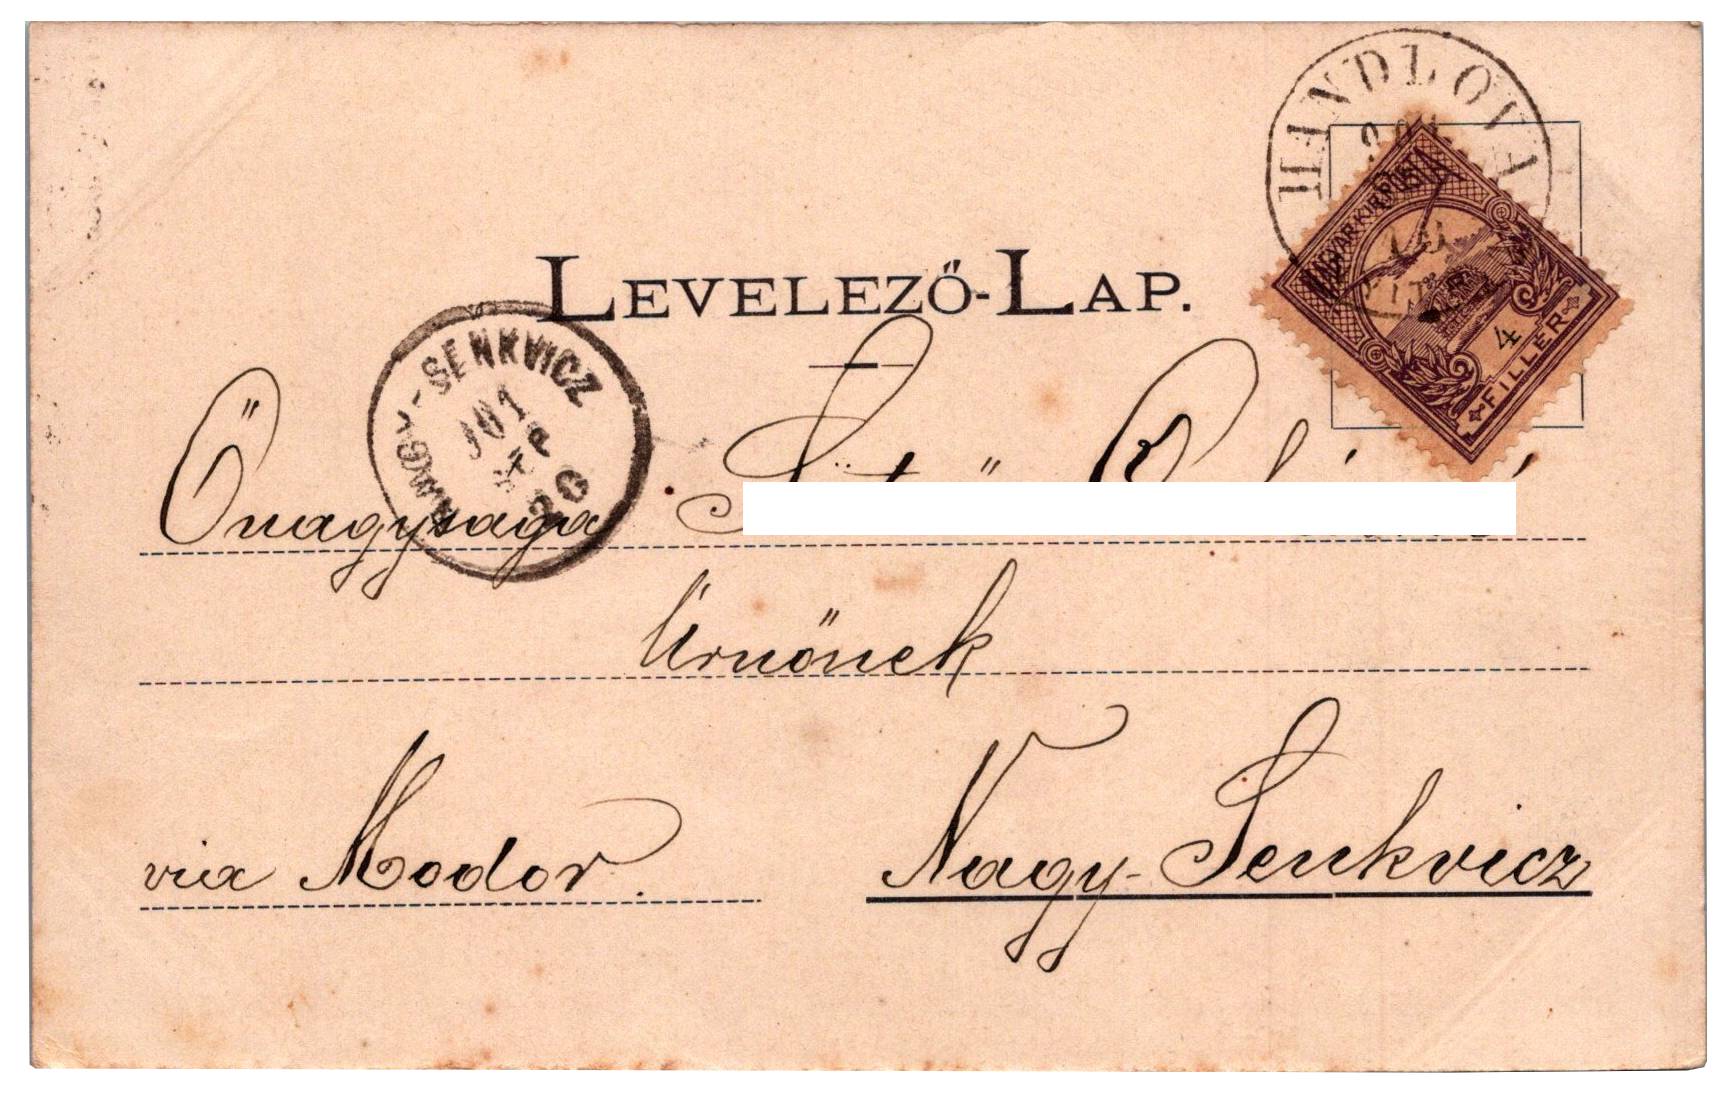 HANDLOVA
MAGYAR KIR. POSTA
4
FILLÉR
LEVELEZŐ-LAP.
NAGY-SENKVICZ
901
SEP
20
Őnagysága
Úrnőnek
via Modor.
Nagy-Senkvicz